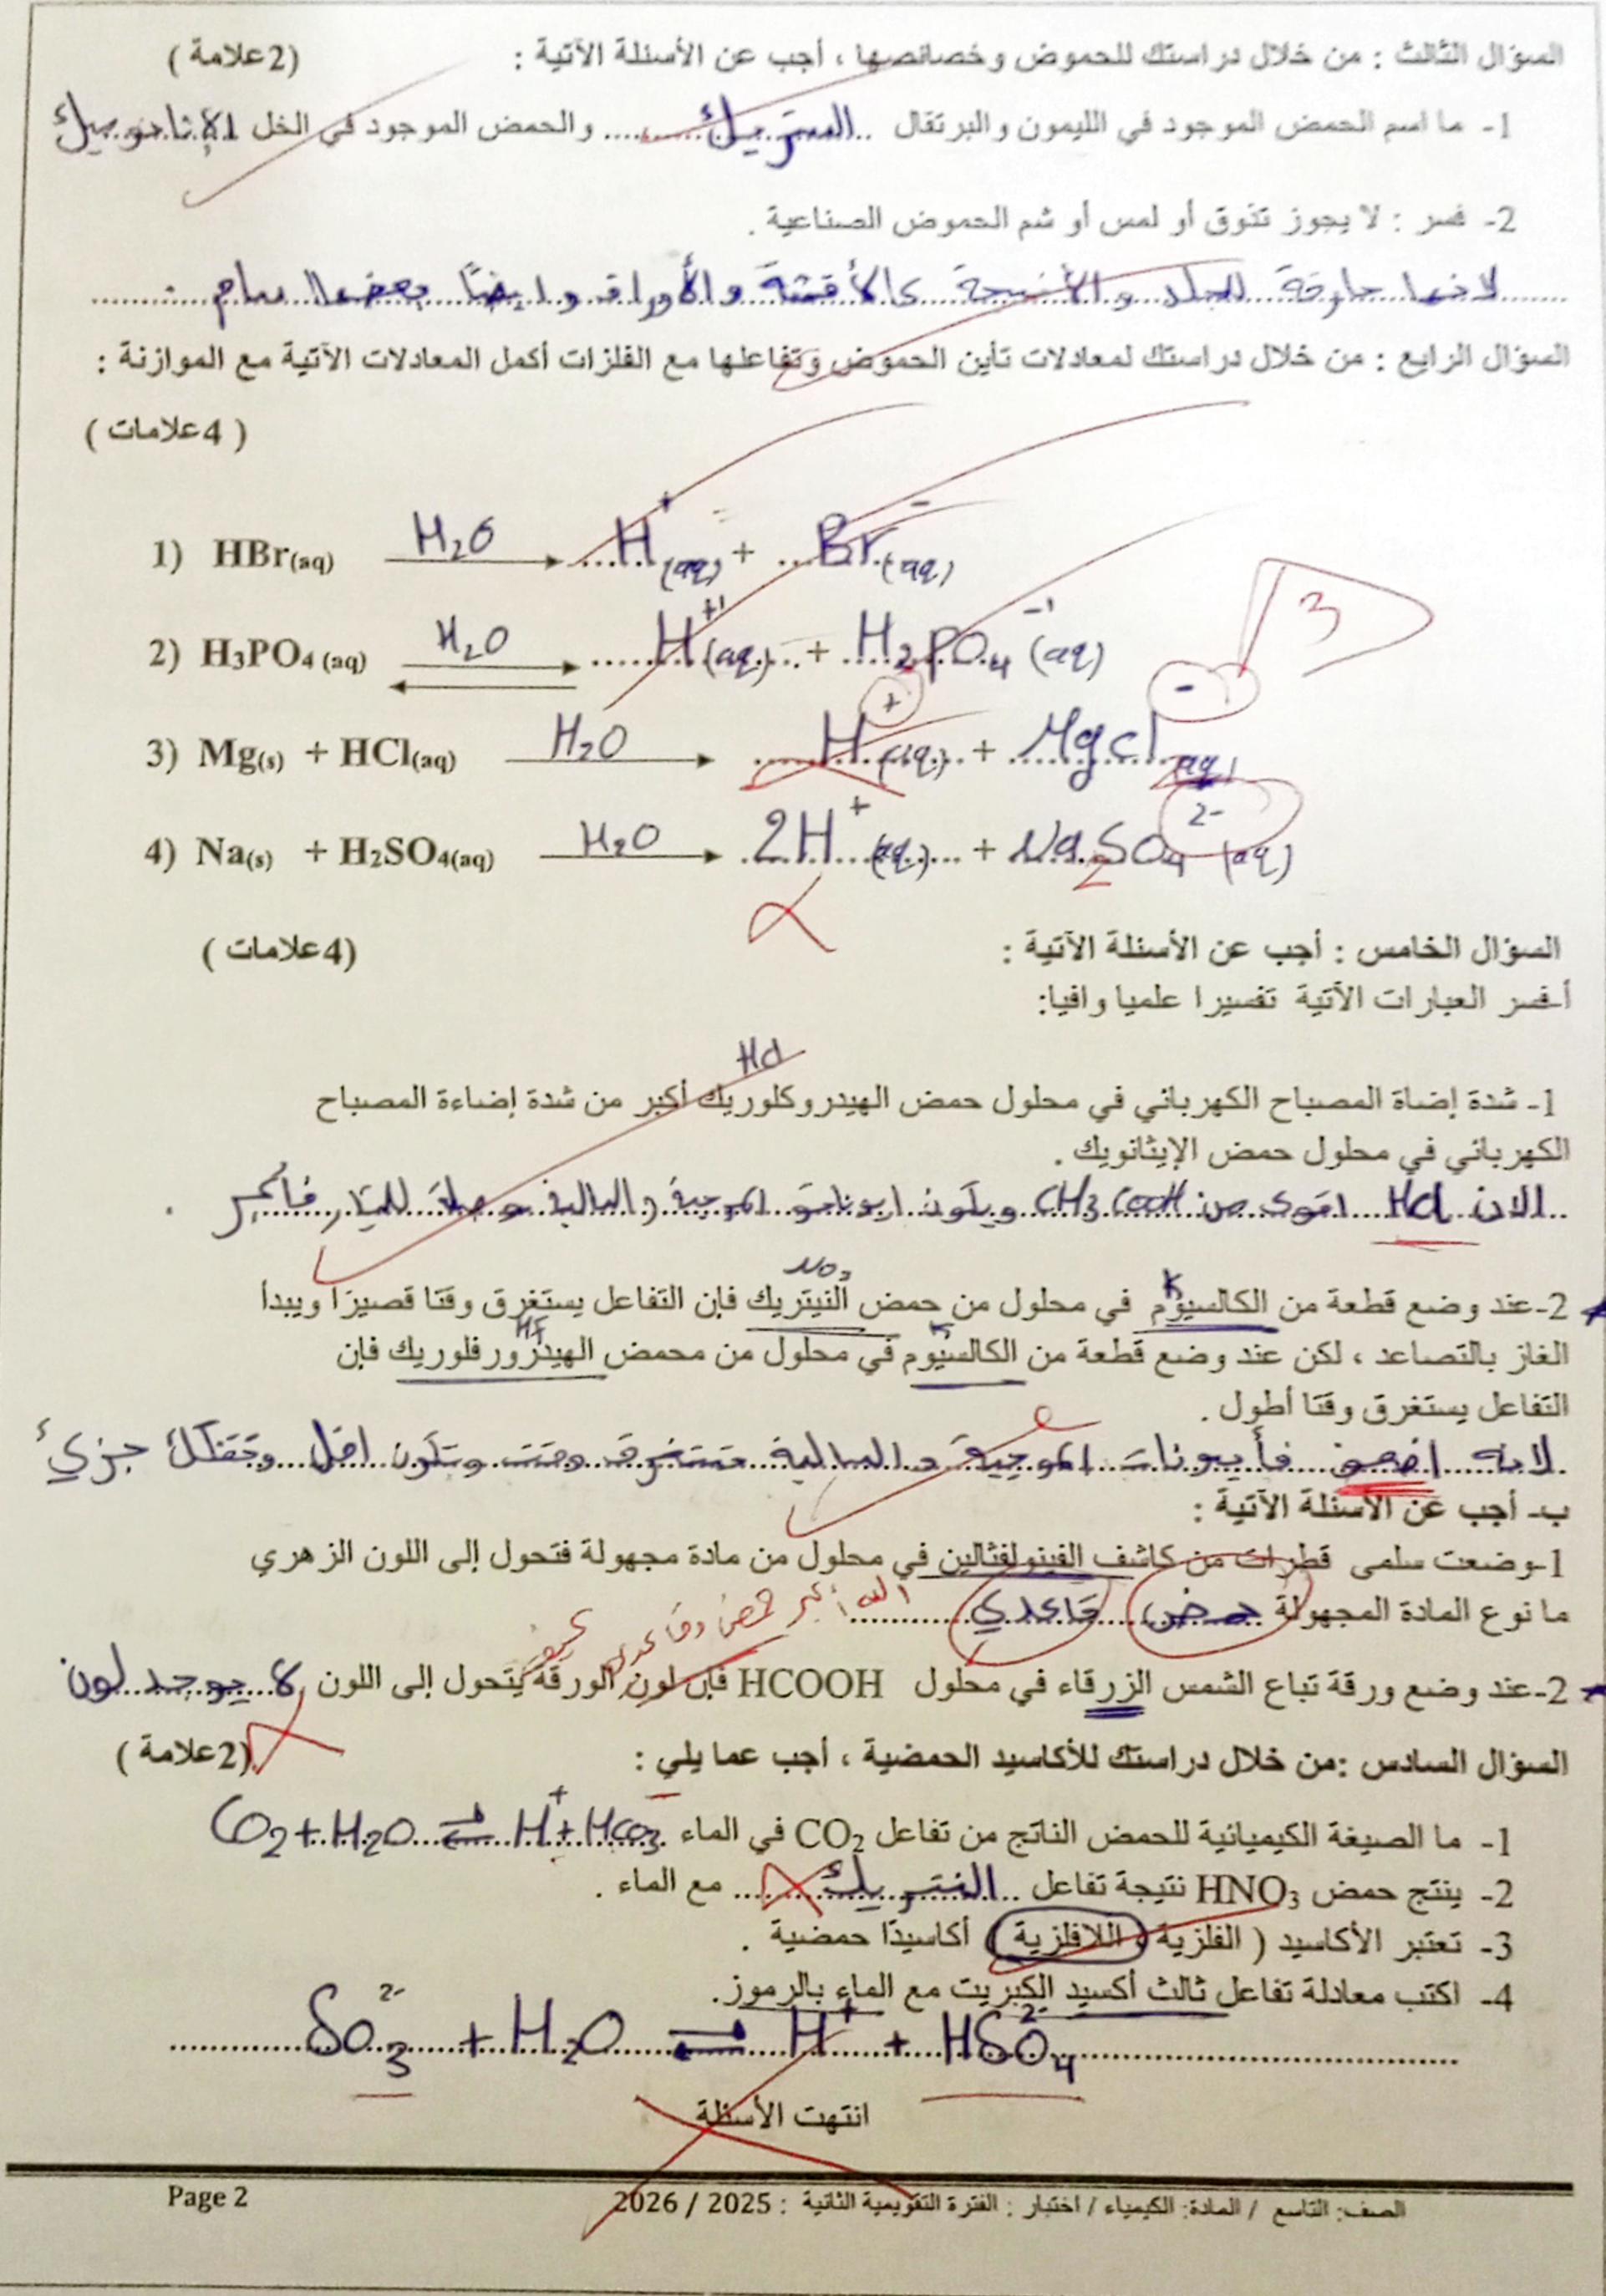 السؤال الثالث : من خلال دراستك للحموض وخصائصها ، أجب عن الأسئلة الآتية : (2علامة )
1- ما اسم الحمض الموجود في الليمون والبرتقال ..الستريك...... والحمض الموجود في الخل الإيثانويك
2- فسر : لا يجوز تذوق أو لمس أو شم الحموض الصناعية .
لانها حارقة للجلد والأنسجة كالأقمشة والأوراق وايضاً بعضها سام .
السؤال الرابع : من خلال دراستك لمعادلات تأين الحموض وتفاعلها مع الفلزات أكمل المعادلات الآتية مع الموازنة :
( 4علامات )
1) HBr(aq) H₂O → H⁺(aq) + Br⁻(aq)
2) H₃PO₄ (aq) H₂O ⇄ H⁺¹(aq) + H₂PO₄⁻¹ (aq)
3
3) Mg(s) + HCl(aq) H₂O → H⁺(aq) + Mgcl⁻(aq)
4) Na(s) + H₂SO₄(aq) H₂O → 2H⁺(aq) + Na₂SO₄²⁻ (aq)
السؤال الخامس : أجب عن الأسئلة الآتية : (4علامات )
أ-فسر العبارات الآتية تفسيرا علميا وافيا:
Hcl
1- شدة إضاة المصباح الكهربائي في محلول حمض الهيدروكلوريك أكبر من شدة إضاءة المصباح
الكهربائي في محلول حمض الإيثانويك .
الان Hcl اقوى من CH₃COOH ويكون ايوناته الموجبة والسالبة
NO₃ K
2-عند وضع قطعة من الكالسيوم في محلول من حمض النيتريك فإن التفاعل يستغرق وقتا قصيرًا ويبدأ
HF K
الغاز بالتصاعد ، لكن عند وضع قطعة من الكالسيوم في محلول من محمض الهيدرورفلوريك فإن
التفاعل يستغرق وقتا أطول .
لانه اضعف فأيونات الموجبة والسالبة تستغرق وقت وتكون اقل وتتفكك جزئي
ب- أجب عن الأسئلة الآتية :
1-وضعت سلمى قطرات من كاشف الفينولفثالين في محلول من مادة مجهولة فتحول إلى اللون الزهري
ما نوع المادة المجهولة حمض قاعدي
الله أكبر حمض وقاعدي كيف
2-عند وضع ورقة تباع الشمس الزرقاء في محلول HCOOH فإن لون الورقة يتحول إلى اللون لا يوجد لون
السؤال السادس :من خلال دراستك للأكاسيد الحمضية ، أجب عما يلي : (2علامة )
1- ما الصيغة الكيميائية للحمض الناتج من تفاعل CO₂ في الماء CO₂ + H₂O ⇄ H⁺ + HCO₃
2- ينتج حمض HNO₃ نتيجة تفاعل ..النتريك... مع الماء .
3- تعتبر الأكاسيد ( الفلزية ، اللافلزية ) أكاسيدًا حمضية .
4- اكتب معادلة تفاعل ثالث أكسيد الكبريت مع الماء بالرموز.
SO₃²⁻ + H₂O ⇄ H⁺ + HSO₄²⁻
انتهت الأسئلة
الصف: التاسع / المادة: الكيمياء / اختبار : الفترة التقويمية الثانية : 2025 / 2026 Page 2